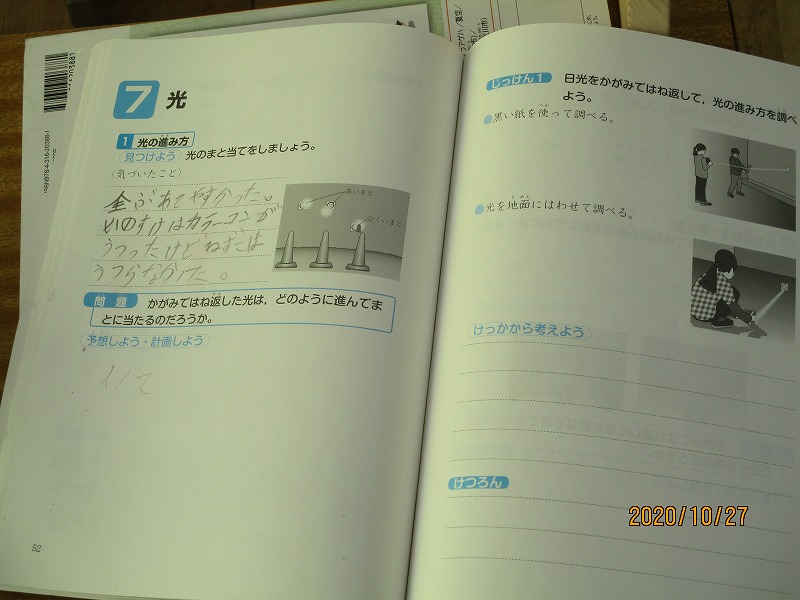 7 光
1 光の進み方
見つけよう 光のまと当てをしましょう。
(気づいたこと)
全ぶあてやすかった。
いのすけはカラーコンが
うつったけどねずこは
うつらなかった。
高いまと
ひくいまと
問題 かがみではね返した光は，どのように進んでま
とに当たるのだろうか。
予想しよう・計画しよう
52
じっけん1 日光をかがみではね返して，光の進み方を調べ
よう。
黒い紙を使って調べる。
光を地面にはわせて調べる。
けっかから考えよう
けつろん
2020/10/27